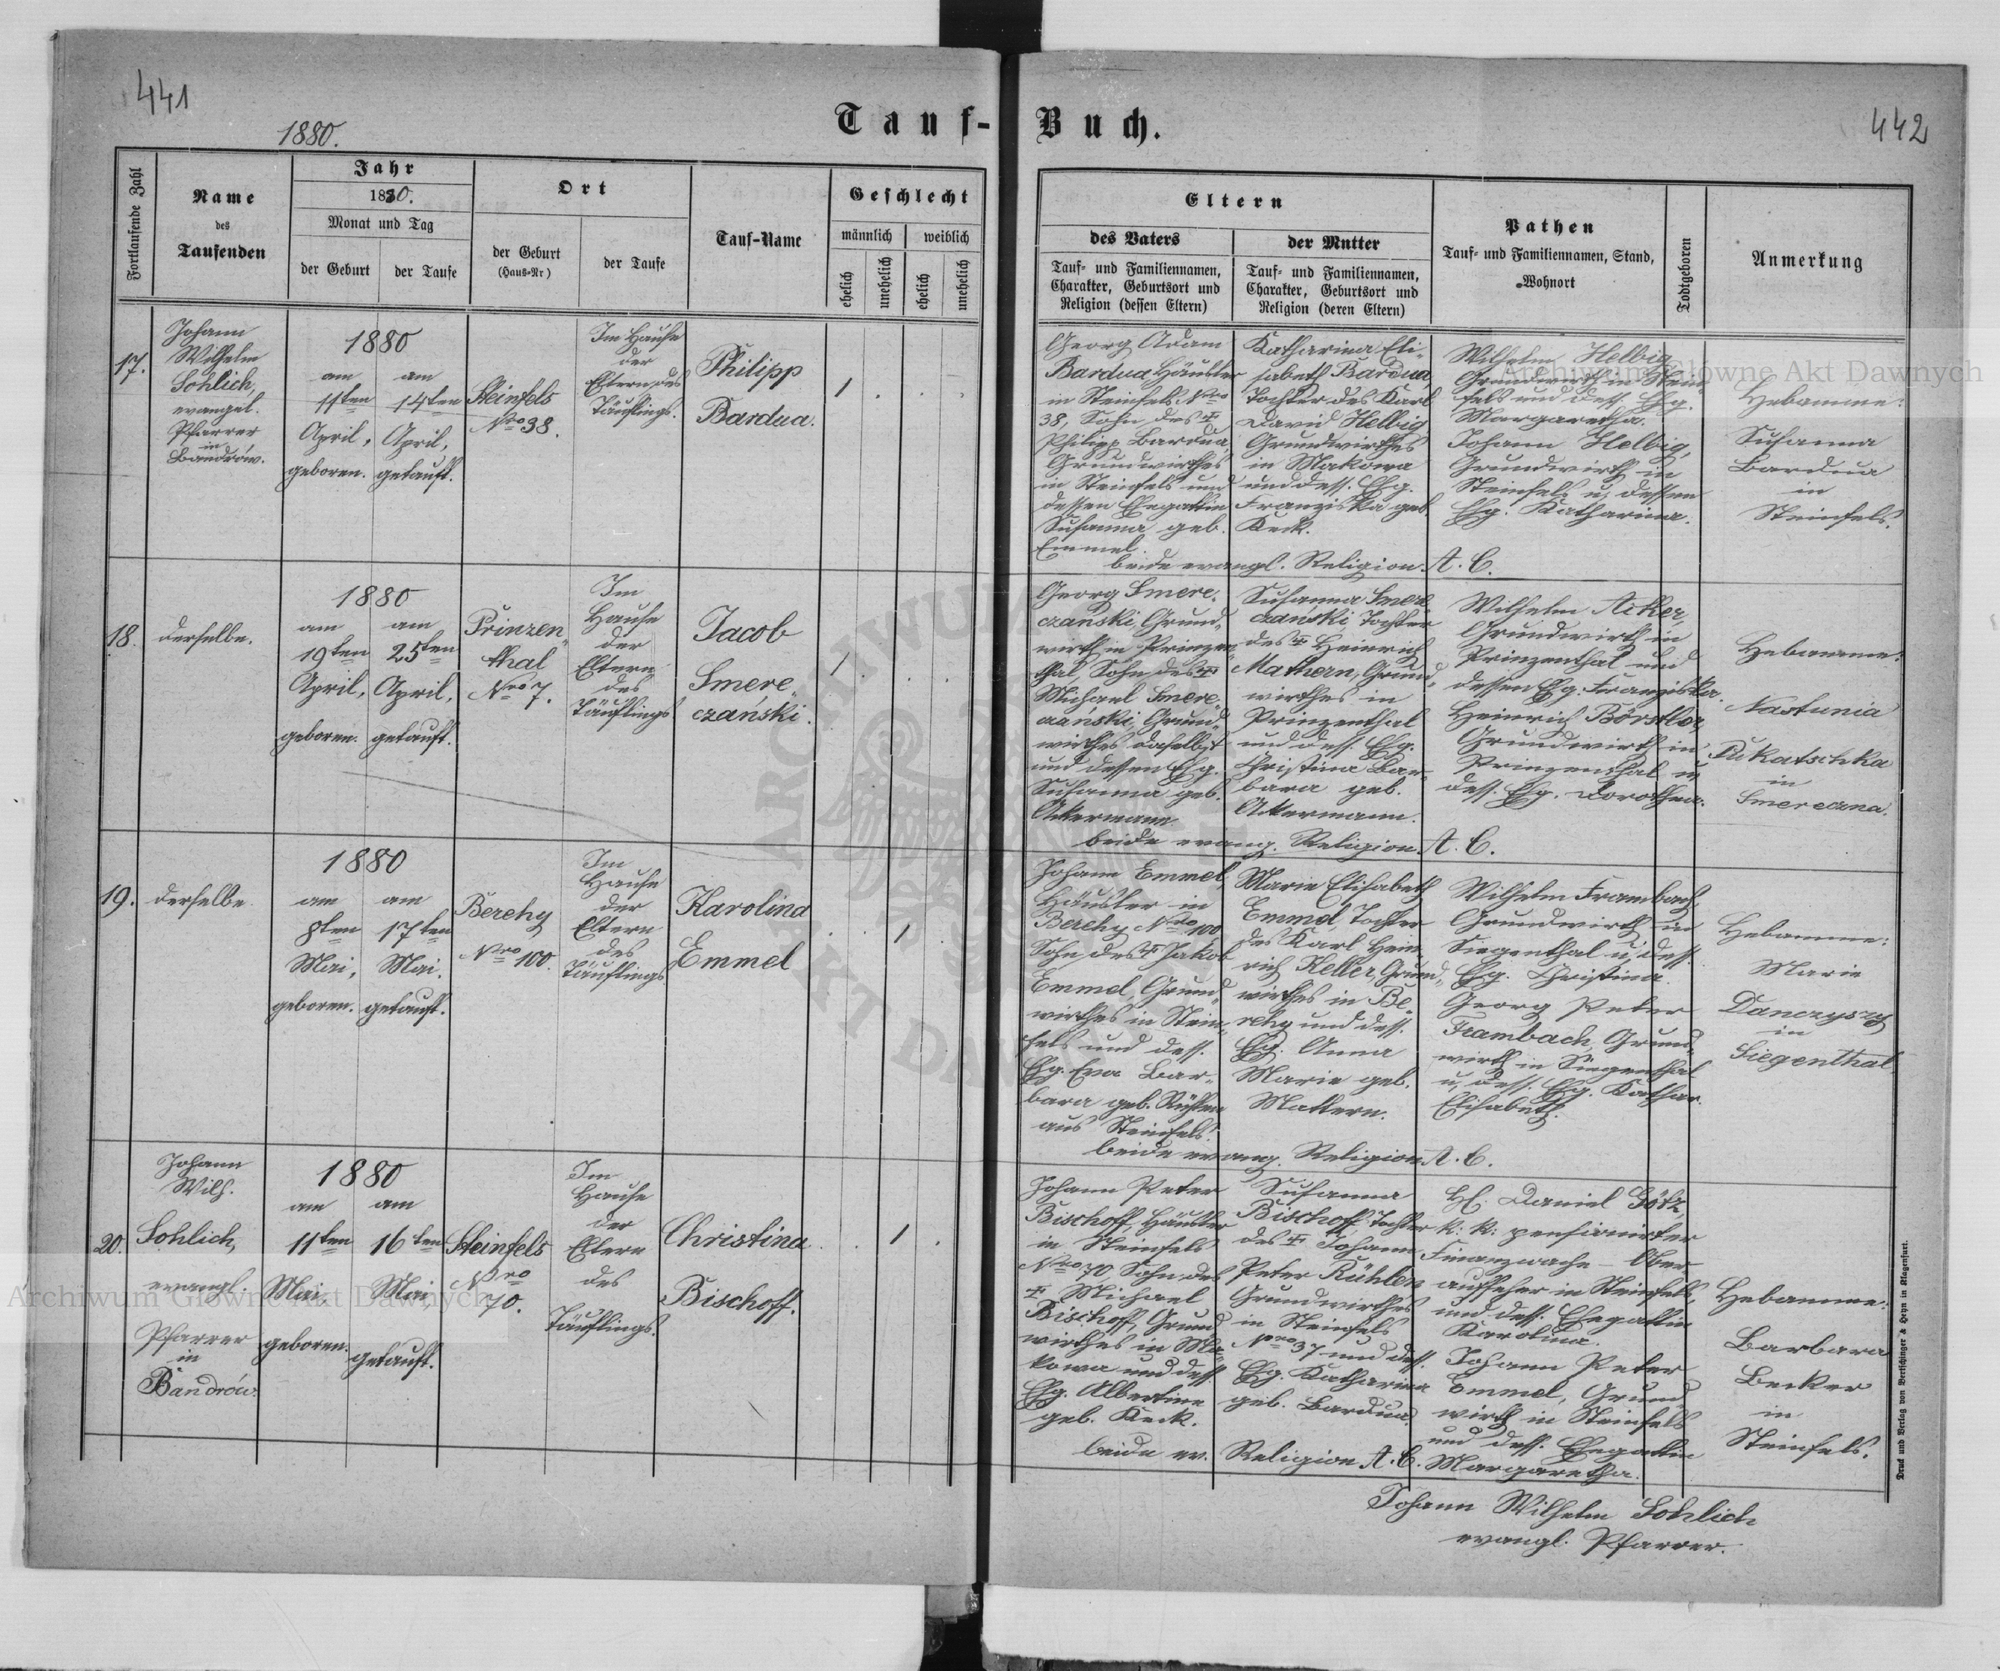 441
1880.
Tauf-Buch.
442
Fortlaufende Zahl
Name
des
Taufenden
Jahr
1880.
Monat und Tag
der Geburt
der Taufe
Ort
der Geburt
(Haus-Nr)
der Taufe
Tauf-Name
Geschlecht
männlich
weiblich
ehelich
unehelich
ehelich
unehelich
Eltern
des Vaters
Tauf- und Familiennamen,
Charakter, Geburtsort und
Religion (dessen Eltern)
der Mutter
Tauf- und Familiennamen,
Charakter, Geburtsort und
Religion (deren Eltern)
Pathen
Tauf- und Familiennamen, Stand,
Wohnort
Todtgeboren
Anmerkung
17.
Johann
Wilhelm
Sohlich,
evangel.
Pfarrer
in
Bandrów.
1880
am
11ten
April,
geboren.
am
14ten
April,
getauft.
Steinfels
Nro 38.
Im Hause
der
Eltern des
Täuflings.
Philipp
Bardua.
1
Georg Adam
Bardua Häusler
in Steinfels Nro
38, Sohn des †
Philipp Bardua,
Grundwirthes
in Steinfels und
dessen Ehegattin
Susanna geb.
Emmel.
Katharina Eli-
sabeth Bardua,
Tochter des Karl
David Helbig
Grundwirthes
in Makowa
und dess. Ehg.
Franziska geb.
Keck.
beide evangl. Religion A. C.
Wilhelm Helbig
Grundwirth in Stein-
fels und dess. Ehg.
Margaretha.
Johann Helbig,
Grundwirth in
Steinfels u. dessen
Ehg. Katharina.
Hebamme:
Susanna
Bardua
in
Steinfels.
18.
derselbe.
1880
am
19ten
April,
geboren.
am
25ten
April,
getauft.
Prinzen-
thal
Nro 7.
Im
Hause
der
Eltern
des
Täuflings
Jacob
Smere-
czański.
1
Georg Smere-
czański, Grund-
wirth in Prinzen-
thal, Sohn des †
Michael Smere-
czanski, Grund-
wirthes daselbst
und dessen Ehg.
Susanna geb.
Ackermann.
Susanna Smere-
czański, Tochter
des † Heinrich
Mathern, Grund-
wirthes in
Prinzenthal
und dess. Ehg.
Christina Bar-
bara geb.
Ackermann.
beide evang. Religion A. C.
Wilhelm Acker,
Grundwirth in
Prinzenthal und
dessen Ehg. Franziska.
Heinrich Börstler,
Grundwirth in
Prinzenthal u
dess. Ehg. Dorothea.
Hebamme:
Nastunia
Dukatschka
in
Smereczna.
19.
derselbe
1880
am
8ten
Mai,
geboren.
am
17ten
Mai.
getauft.
Berehy
Nro 100.
Im
Hause
der
Eltern
des
Täuflings
Karolina
Emmel
1
Johann Emmel,
Häusler in
Berehy Nro 100
Sohn des † Jakob
Emmel, Grund-
wirthes in Stein-
fels und dess.
Ehg. Eva Bar-
bara geb.
aus Steinfels.
Marie Elisabeth
Emmel, Tochter
des Karl Hein-
rich Keller, Grund-
wirthes in Be-
rehy und dess.
Ehg. Anna
Marie geb.
Mattern.
beide evang. Religion A. C.
Wilhelm Frambach
Grundwirth in
Siegenthal u. dess.
Ehg. Christina.
Georg Peter
Frambach, Grund-
wirth in Siegenthal
u. dess. Ehg. Kathar.
Elisabeth.
Hebamme:
Marie
Danczyszy
in
Siegenthal.
20.
Johann
Wilh.
Sohlich,
evangl.
Pfarrer
in
Bandrów.
1880
am
11ten
Mai,
geboren.
am
16ten
Mai,
getauft.
Steinfels
Nro
70.
Im
Hause
der
Eltern
des
Täuflings.
Christina
Bischoff.
1
Johann Peter
Bischoff, Häusler
in Steinfels
Nro 70, Sohn des
† Michael
Bischoff, Grund-
wirthes in Ma-
kowa und dess
Ehg. Albertine
geb. Keck.
Susanna
Bischoff Tochter
des † Johann
Peter Rühlen
Grundwirthes
in Steinfels
Nro 37 und dess.
Ehg. Katharina
geb. Bardua.
beide ev. Religion A. C.
H. Daniel Götz,
k. k. pensionirter
Finanzwache-Ober-
aufseher in Steinfels,
und dess. Ehegattin
Karolina.
Johann Peter
Emmel, Grund-
wirth in Steinfels
und dess. Ehegattin
Margaretha.
Hebamme:
Barbara
Becker
in
Steinfels.
Johann Wilhelm Sohlich
evangl. Pfarrer.
Druck und Verlag von Bertschinger & Heyn in Klagenfurt.
Archiwum Główne Akt Dawnych
Archiwum Główne Akt Dawnych